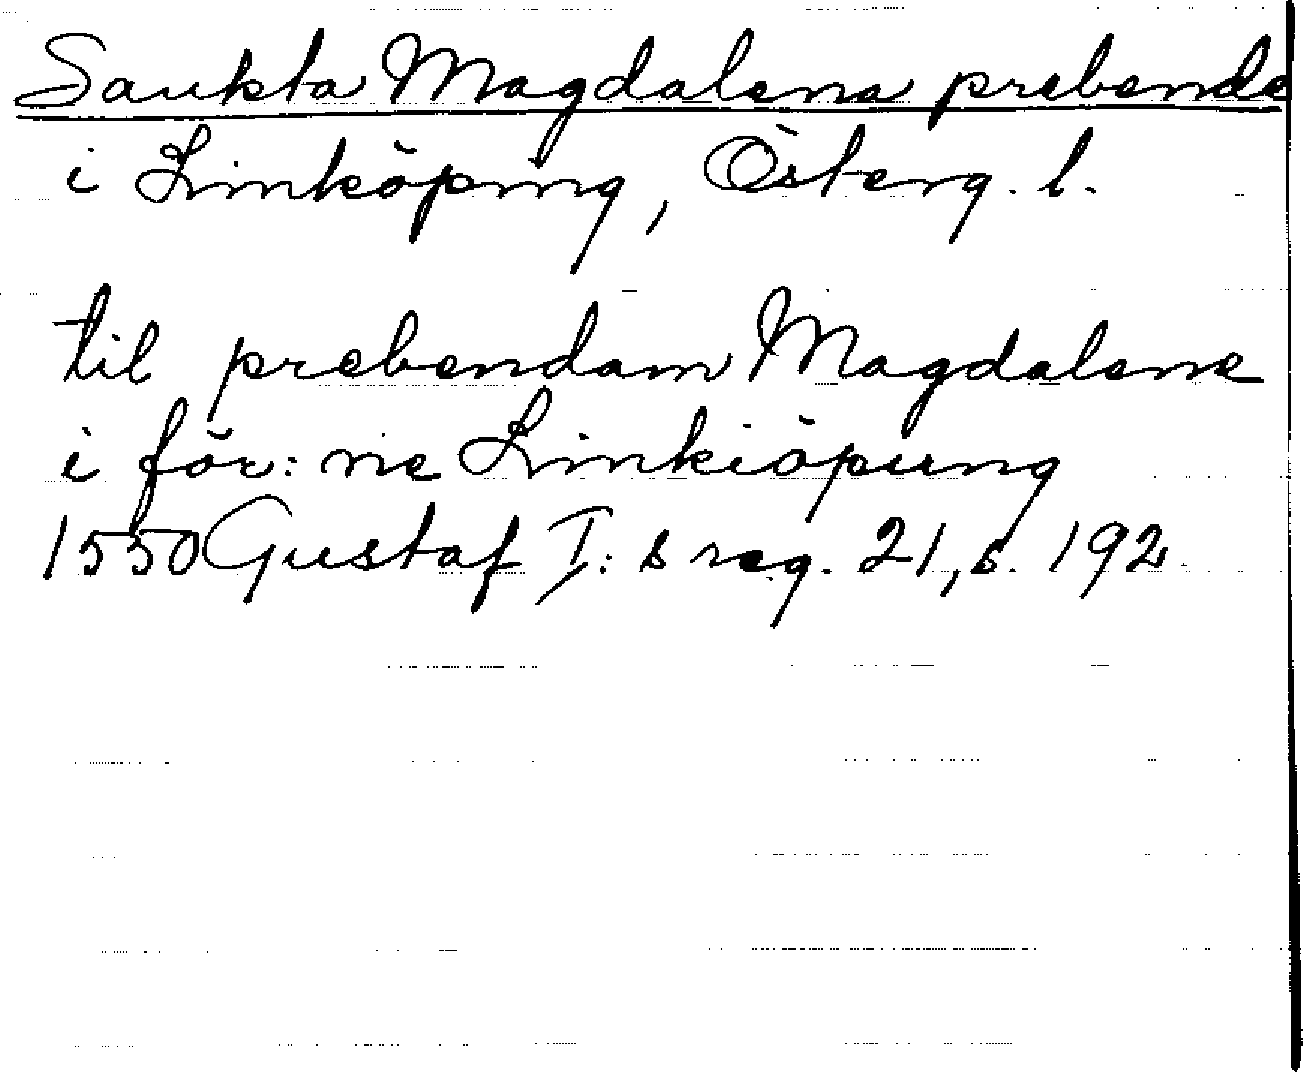 Sankta Magdalena prebende
i Linköping, Österg. l.
til prebendam Magdalene
i för: ne Linkiöpung
1550 Gustaf I: s reg. 21, s. 192